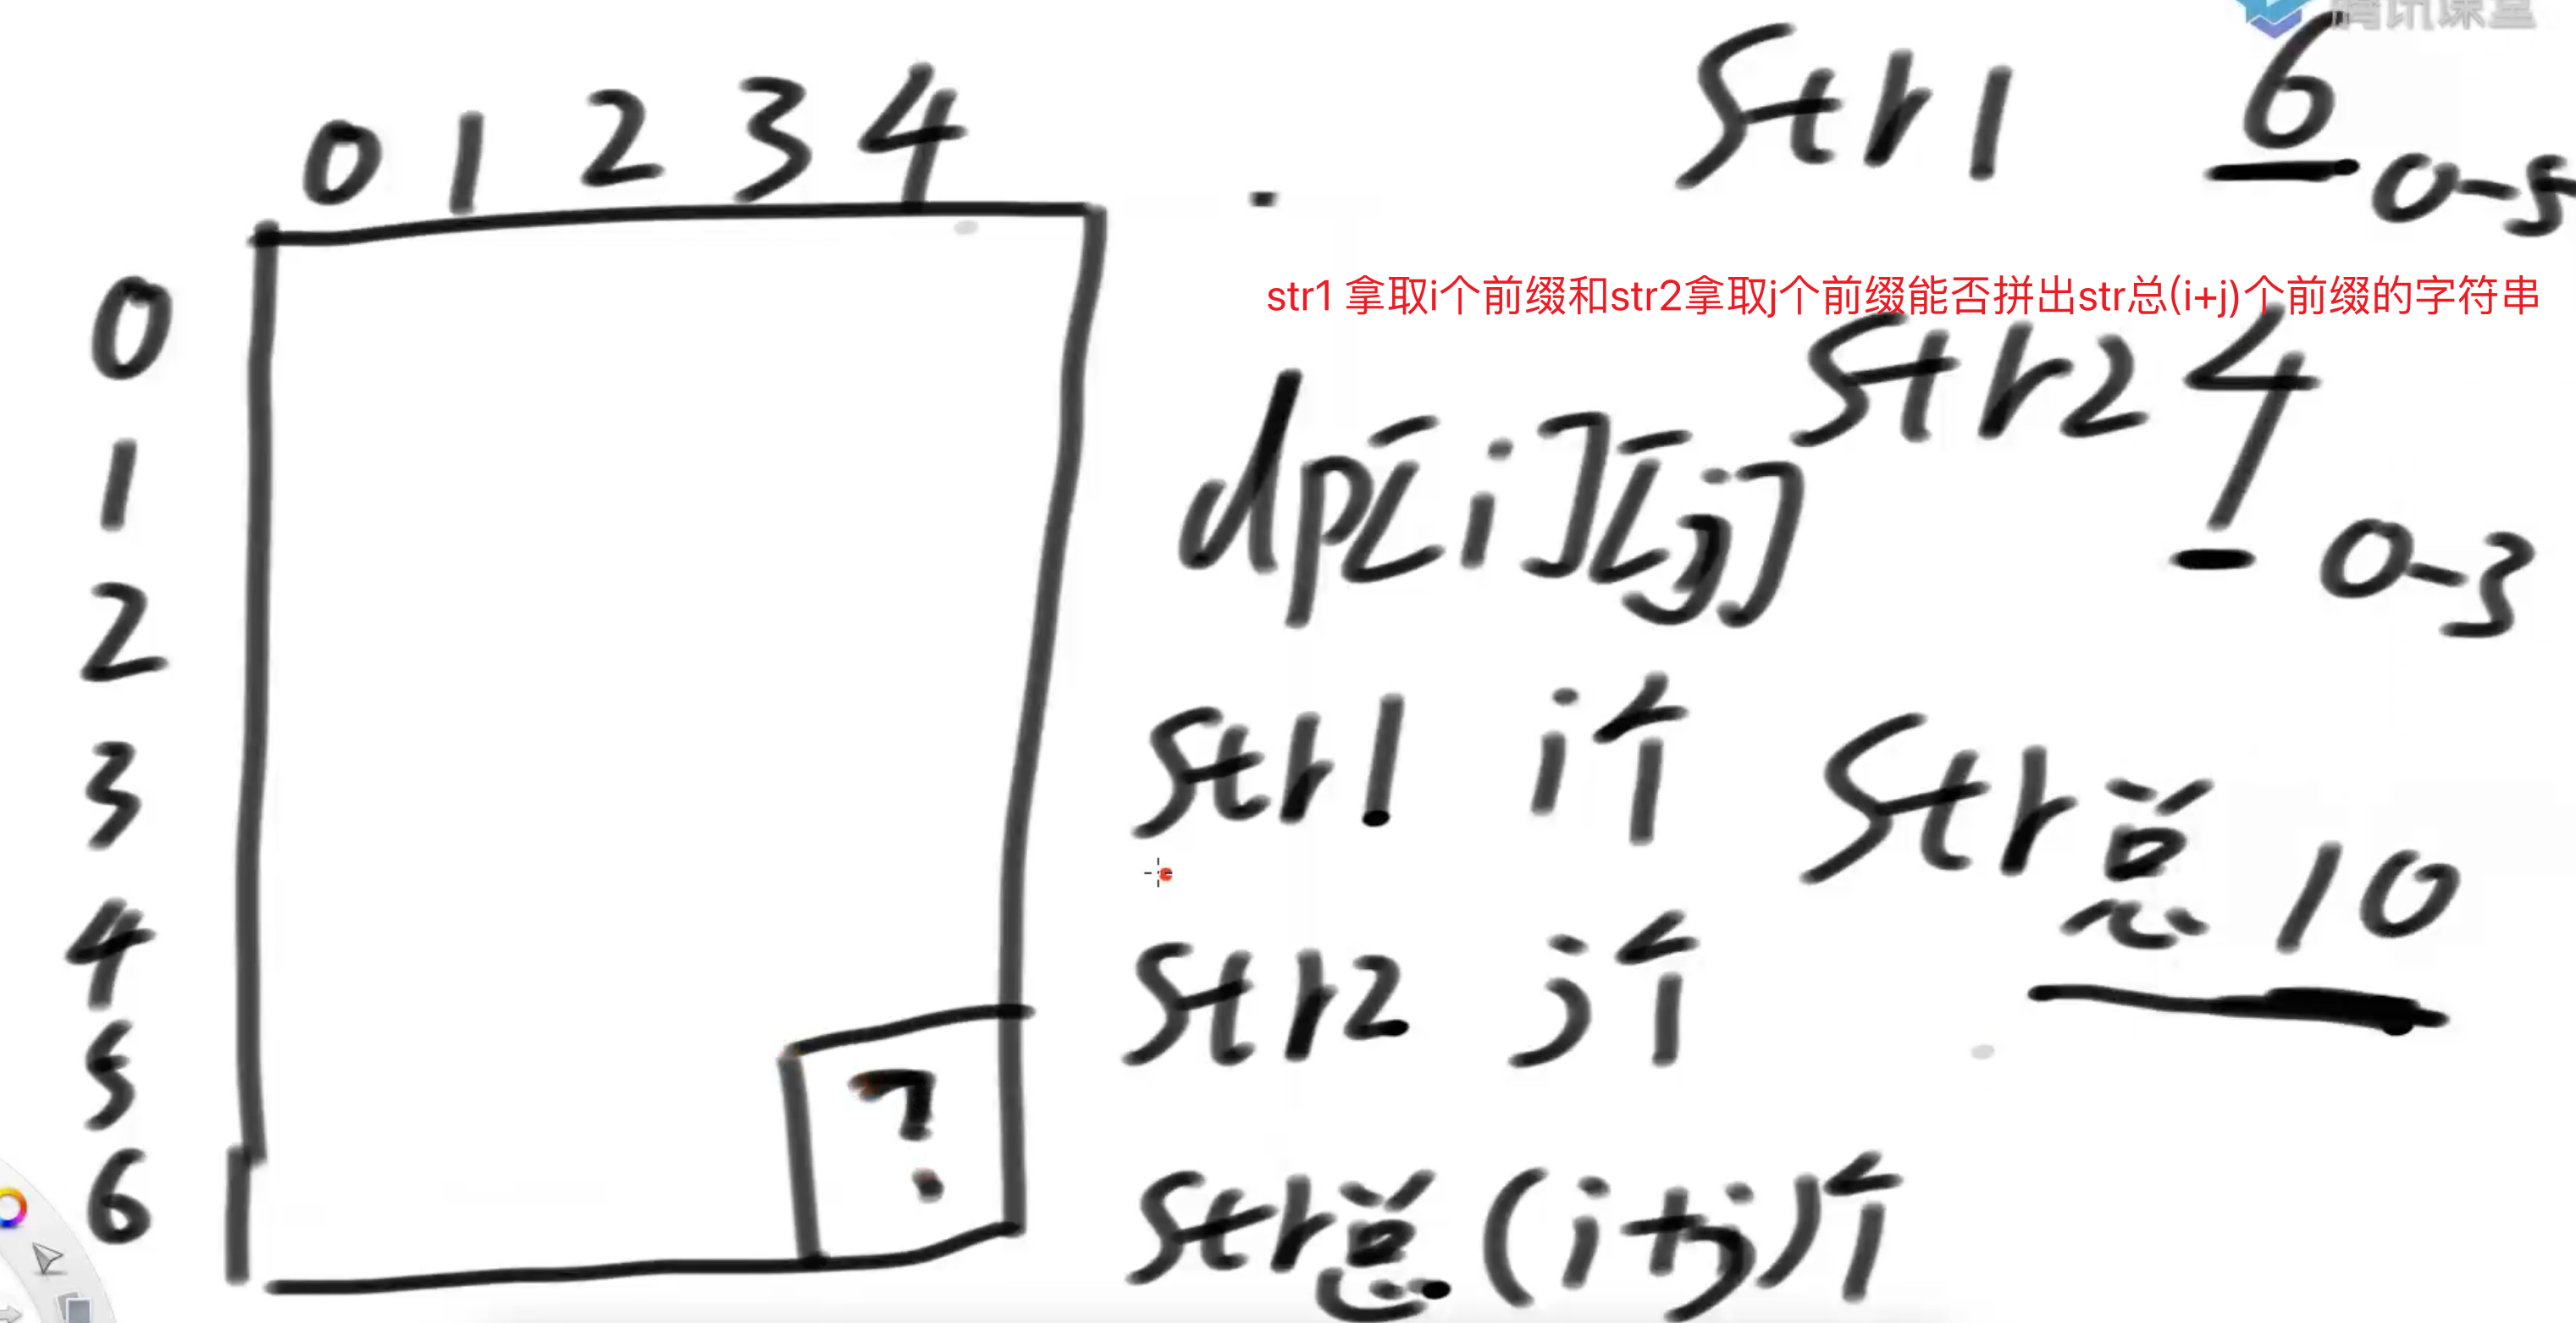 腾讯课堂
0 1 2 3 4
str1 6 0-5
str1 拿取i个前缀和str2拿取j个前缀能否拼出str总(i+j)个前缀的字符串
str2 4 0-3
dp[i][j]
0
1
2
3
4
5
6
?
str1 i个
str总 10
str2 j个
str总 (i+j)个